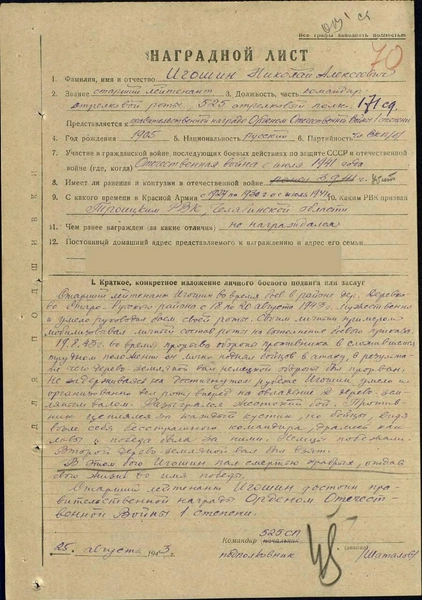 Все графы заполнять полностью
70
НАГРАДНОЙ ЛИСТ
1. Фамилия, имя и отчество Игошин Николай Алексеевич
2. Звание старший лейтенант 3. Должность, часть командир
стрелковой роты, 525 стрелковый полк 171 сд
Представляется к правительственной награде Орденом Отечественной Войны 1 степени
4. Год рождения 1905 5. Национальность русский 6. Партийность
7. Участие в гражданской войне, последующих боевых действиях по защите СССР и отечественной
войне (где, когда) Отечественная война с июля 1941 года
8. Имеет ли ранения и контузии в отечественной войне
9. С какого времени в Красной Армии 10. Каким РВК призван
Троицким РВК Челябинской области
11. Чем ранее награжден (за какие отличия) не награждался
12. Постоянный домашний адрес представляемого к награждению и адрес его семьи
I. Краткое, конкретное изложение личного боевого подвига или заслуг
Старший лейтенант Игошин во время боев в районе дер.
Старо-Русского района с 18 по 20 августа 1943г. мужественно
и умело руководил боем своей роты. Своим личным примером
мобилизовывал личный состав роты на выполнение боевого приказа.
19.8.43г. во время прорыва обороны противника в сложившемся
трудном положении он лично поднял бойцов в атаку, в результа-
те чего дерево земляной вал немецкой обороны был прорван.
Не задерживаясь на достигнутом рубеже Игошин умело и
организованно вел роту вперед на овладение 2 дерево зем-
ляным валом. Разыгрался жестокий бой. Против-
ник цеплялся за каждый кустик но бойцы видя
впереди себя бесстрашного командира, дрались как
львы и победа была за ними. Немцы побежали.
Второй дерево-земляной вал был взят.
В этом бою Игошин пал смертью храбрых, отдав
свою жизнь во имя победы.
Старший лейтенант Игошин достоин пра-
вительственной награды Орденом Отечест-
венной Войны 1 степени.
Командир 525 СП
подполковник /Шаталов/
25 августа 1943.